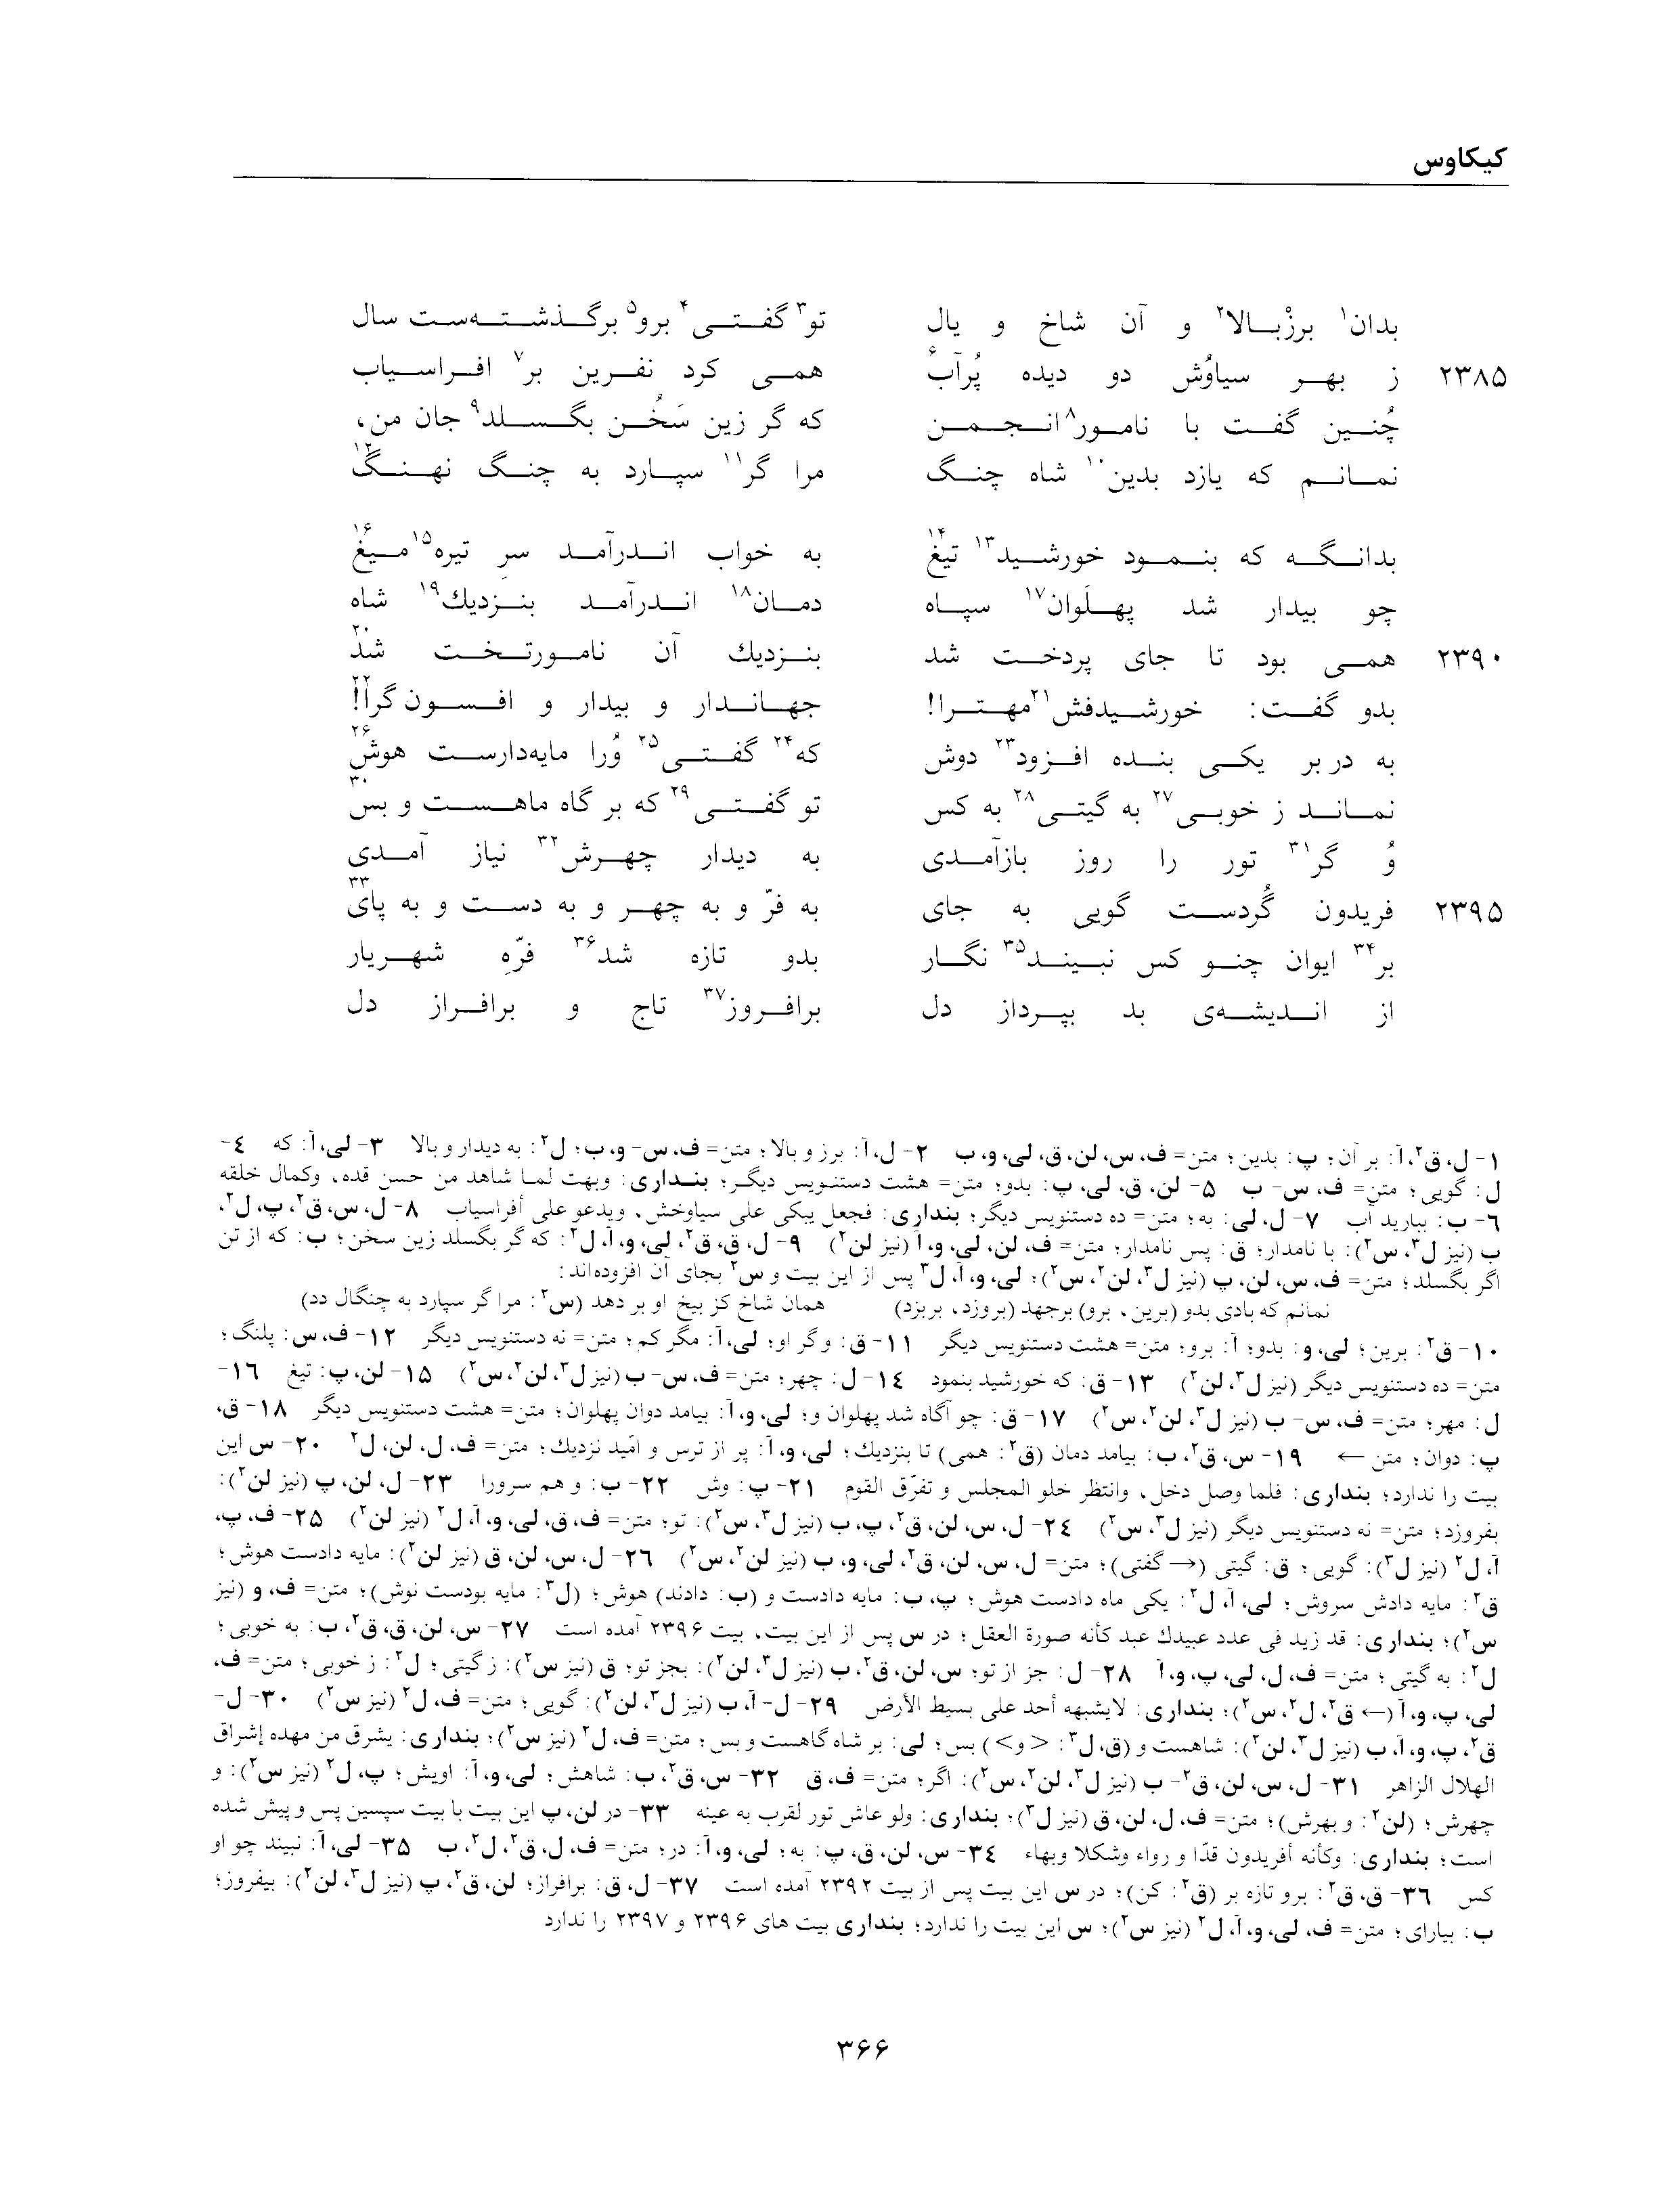 کیکاوس
بدان۱ برزْبالا۲ و آن شاخ و یال تو۳ گفتی۴ برو۵ برگذشته‌ست سال
۲۳۸۵ ز بهر سیاوُش دو دیده پُرآب۶ همی کرد نفرین بر۷ افراسیاب
چُنین گفت با نامور۸ انجمن که گر زین سَخُن بگسلد۹ جان من،
نمانم که یازد بدین۱۰ شاه چنگ مرا گر۱۱ سپارد به چنگ نهنگ۱۲
بدانگه که بنمود خورشید۱۳ تیغ۱۴ به خواب اندرآمد سرِ تیره۱۵ میغ۱۶
چو بیدار شد پهلَوان۱۷ سپاه دمان۱۸ اندرآمد بنزدیك۱۹ شاه
۲۳۹۰ همی بود تا جای پردخت شد بنزدیك آن نامورتخت شد۲۰
بدو گفت: خورشیدفش۲۱ مهترا! جهاندار و بیدار و افسون‌گرا!۲۲
به در بر یکی بنده افزود۲۳ دوش که۲۴ گفتی۲۵ وُرا مایه‌دارست هوش۲۶
نماند ز خوبی۲۷ به گیتی۲۸ به کس تو گفتی۲۹ که بر گاه ماهست و بس۳۰
وُ گر۳۱ تور را روز بازآمدی به دیدار چهرش۳۲ نیاز آمدی
۲۳۹۵ فریدون گُردست گویی به جای به فرّ و به چهر و به دست و به پای۳۳
بر۳۴ ایوان چنو کس نبیند۳۵ نگار بدو تازه شد۳۶ فرّهِ شهریار
از اندیشه‌ی بد بپرداز دل برافروز۳۷ تاج و برافراز دل
۱- ل، ق۲، آ: بر آن؛ پ: بدین؛ متن= ف، س، لن، ق، لی، و، ب ۲- ل، آ: برز و بالا؛ متن= ف، س- و، ب؛ ل۲: به دیدار و بالا ۳- لی، آ: که ۴-
ل: گویی؛ متن= ف، س- ب ۵- لن، ق، لی، پ: بدو؛ متن= هشت دستنویس دیگر؛ بنداری: وبهت لما شاهد من حسن قده، وکمال خلقه
۶- ب: ببارید آب ۷- ل، لی: به؛ متن= ده دستنویس دیگر؛ بنداری: فجعل یبکی علی سیاوخش، ویدعو علی أفراسیاب ۸- ل، س، ق۲، پ، ل۲،
ب (نیز ل۳، س۲): با نامدار؛ ق: پس نامدار؛ متن= ف، لن، لی، و، آ (نیز لن۲) ۹- ل، ق، ق۲، لی، و، آ، ل۲: که گر بگسلد زین سخن؛ ب: که از تن
اگر بگسلد؛ متن= ف، س، لن، پ (نیز ل۳، لن۲، س۲)؛ لی، و، آ، ل۳ پس از این بیت و س۲ بجای آن افزوده‌اند:
نمانم که بادی بدو (برین، برو) برجهد (بروزد، بربزد) همان شاخ کز بیخ او بر دهد (س۲: مرا گر سپارد به چنگال دد)
۱۰- ق۲: برین؛ لی، و: بدو؛ آ: برو؛ متن= هشت دستنویس دیگر ۱۱- ق: وگر او؛ لی، آ: مگر کم؛ متن= نه دستنویس دیگر ۱۲- ف، س: پلنگ؛
متن= ده دستنویس دیگر (نیز ل۳، لن۲) ۱۳- ق: که خورشید بنمود ۱۴- ل: چهر؛ متن= ف، س- ب (نیز ل۳، لن۲، س۲) ۱۵- لن، پ: تیغ ۱۶-
ل: مهر؛ متن= ف، س- ب (نیز ل۳، لن۲، س۲) ۱۷- ق: چو آگاه شد پهلوان و؛ لی، و، آ: بیامد دوان پهلوان؛ متن= هشت دستنویس دیگر ۱۸- ق،
پ: دوان؛ متن ← ۱۹- س، ق۲، ب: بیامد دمان (ق۲: همی) تا بنزدیك؛ لی، و، آ: پر از ترس و امّید نزدیك؛ متن= ف، ل، لن، ل۲ ۲۰- س این
بیت را ندارد؛ بنداری: فلما وصل دخل، وانتظر خلو المجلس و تفرّق القوم ۲۱- پ: وش ۲۲- ب: و هم سرورا ۲۳- ل، لن، پ (نیز لن۲):
بفروزد؛ متن= نه دستنویس دیگر (نیز ل۳، س۲) ۲۴- ل، س، لن، ق۲، پ، ب (نیز ل۳، س۲): تو؛ متن= ف، ق، لی، و، آ، ل۲ (نیز لن۲) ۲۵- ف، پ،
آ، ل۲ (نیز ل۳): گویی؛ ق: گیتی (→ گفتی)؛ متن= ل، س، لن، ق۲، لی، و، ب (نیز لن۲، س۲) ۲۶- ل، س، لن، ق (نیز لن۲): مایه دادست هوش؛
ق۲: مایه دادش سروش؛ لی، آ، ل۲: یکی ماه دادست هوش؛ پ، ب: مایه دادست و (ب: دادند) هوش؛ (ل۳: مایه بودست نوش)؛ متن= ف، و (نیز
س۲)؛ بنداری: قد زید فی عدد عبیدك عبد کأنه صورة العقل؛ در س پس از این بیت، بیت ۲۳۹۶ آمده است ۲۷- س، لن، ق، ق۲، ب: به خوبی؛
ل۲: به گیتی؛ متن= ف، ل، لی، پ، و، آ ۲۸- ل: جز از تو؛ س، لن، ق۲، ب (نیز ل۳، لن۲): بجز تو؛ ق (نیز س۲): ز گیتی؛ ل۲: ز خوبی؛ متن= ف،
لی، پ، و، آ (← ق۲، ل۲، س۲)؛ بنداری: لایشبهه أحد علی بسیط الأرض ۲۹- ل- آ، ب (نیز ل۳، لن۲): گویی؛ متن= ف، ل۲ (نیز س۲) ۳۰- ل-
ق۲، پ، و، آ، ب (نیز ل۳، لن۲): شاهست و (ق، ل۳: <و>) بس؛ لی: بر شاه گاهست و بس؛ متن= ف، ل۲ (نیز س۲)؛ بنداری: یشرق من مهده إشراق
الهلال الزاهر ۳۱- ل، س، لن، ق۲- ب (نیز ل۳، لن۲، س۲): اگر؛ متن= ف، ق ۳۲- س، ق۲، ب: شاهش؛ لی، و، آ: اویش؛ پ، ل۲ (نیز س۲): و
چهرش؛ (لن۲: و بهرش)؛ متن= ف، ل، لن، ق (نیز ل۳)؛ بنداری: ولو عاش تور لقرب به عینه ۳۳- در لن، پ این بیت با بیت سپسین پس و پیش شده
است؛ بنداری: وکأنه أفریدون قدّا و رواء وشکلا وبهاء ۳۴- س، لن، ق، پ: به؛ لی، و، آ: در؛ متن= ف، ل، ق۲، ل۲، ب ۳۵- لی، آ: نبیند چو او
کس ۳۶- ق، ق۲: برو تازه بر (ق۲: کن)؛ در س این بیت پس از بیت ۲۳۹۲ آمده است ۳۷- ل، ق: برافراز؛ لن، ق۲، پ (نیز ل۳، لن۲): بیفروز؛
ب: بیارای؛ متن= ف، لی، و، آ، ل۲ (نیز س۲)؛ س این بیت را ندارد؛ بنداری بیت های ۲۳۹۶ و ۲۳۹۷ را ندارد
۳۶۶